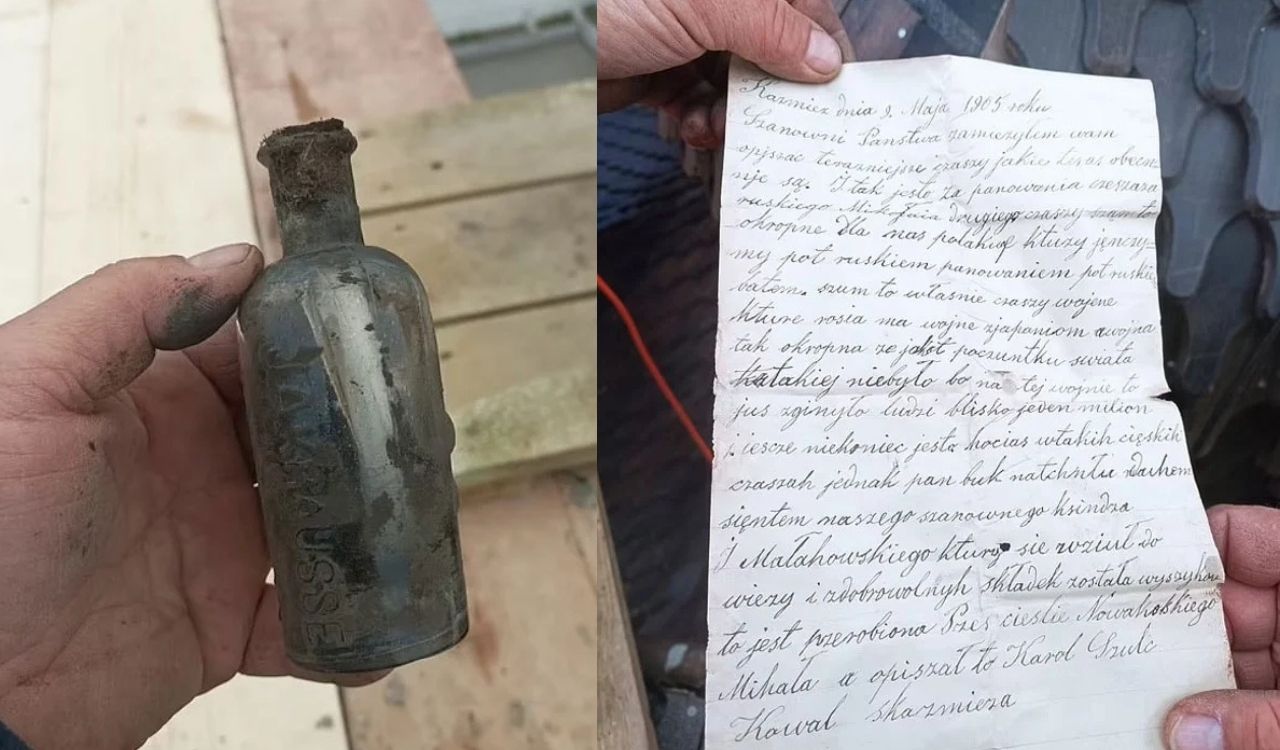 Kazmiez dnia 9. Maja 1905 roku
Szanowni Państwa zamieżyłem wam
opjszac terazniejsze czaszy jakie teras obecn
nje są. I tak jesto za panowania czeszaza
ruskiego Mikołaia drugiego czaszy szamto
okropne dla nas polakuf kturzy jenczy=
my pot ruskiem panowaniem pot ruskie
batem. szum to własnie czaszy wojene
kture rosia ma wojne zjapaniom a wojna
tak okropna ze jest poczuntku swiata
takiej niebyło bo na tej wojnie to
jus zginyło ludzi blisko jeden milion
i iescze niekoniec jesto hocias wtakih cięskih
czaszah jednak pan buk natchnłu duchem
sięntem naszego szanownego ksindza
J Małahowskiego ktury sie wziuł do
wieży i zdobrowolnyh składek została wyszykow
to jest przerobiona Przes cieslie Nowakoskiego
Mihała a opiszał to Karol Szulc
Kowal skazmieza